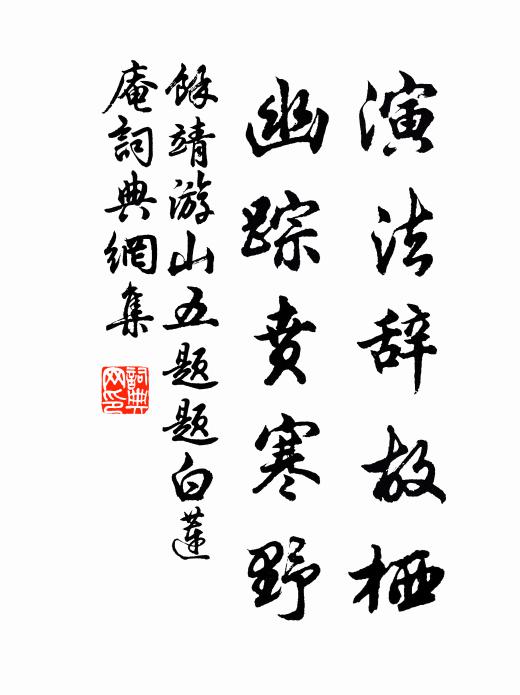 演法辞故栖
幽踪贲寒野
馀靖游山五题题白莲
庵詞典網集
詞典網印